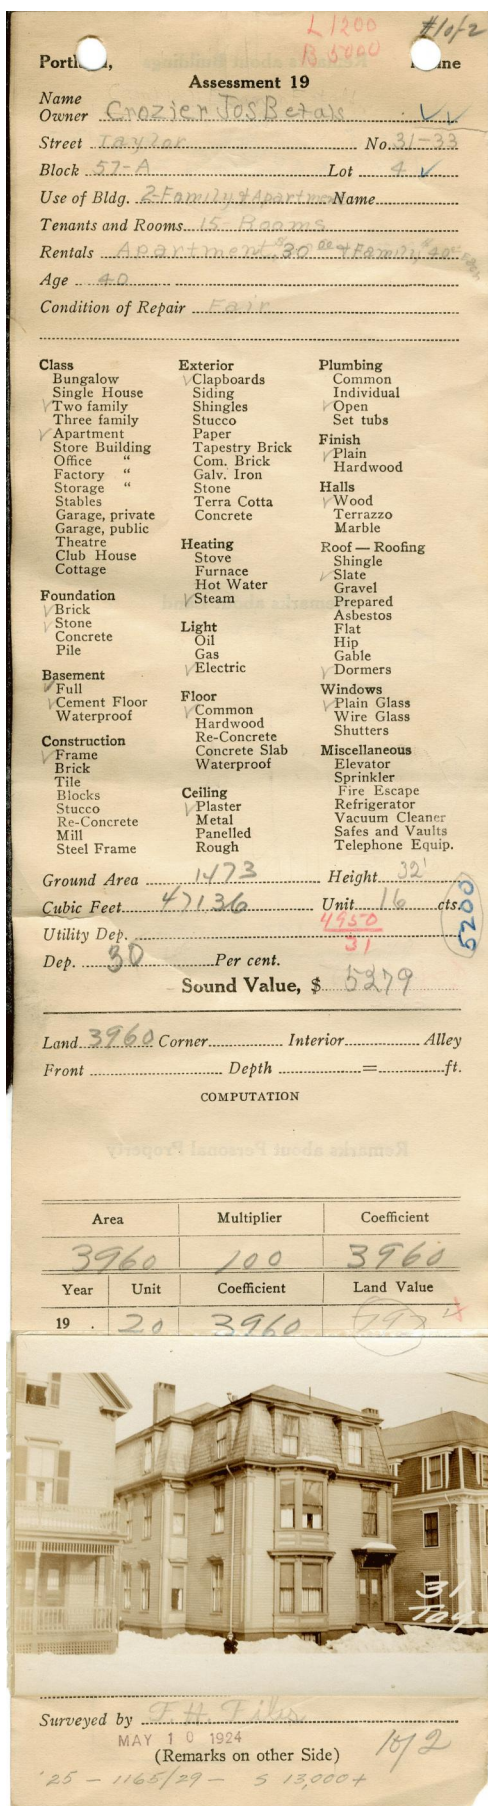 L 1200 #1 of 2
B 5000
Portland, Maine
Assessment 19
Name
Owner Crozier Jos B et als
Street Taylor No. 31-33
Block 57-A Lot 4
Use of Bldg. 2-Family & Apartment Name
Tenants and Rooms 15-Rooms
Rentals Apartment 30 & Family 40
Age 40
Condition of Repair Fair
Class
Bungalow
Single House
✓ Two family
Three family
✓ Apartment
Store Building
Office "
Factory "
Storage "
Stables
Garage, private
Garage, public
Theatre
Club House
Cottage
Foundation
✓ Brick
✓ Stone
Concrete
Pile
Basement
✓ Full
✓ Cement Floor
Waterproof
Construction
✓ Frame
Brick
Tile
Blocks
Stucco
Re-Concrete
Mill
Steel Frame
Exterior
✓ Clapboards
Siding
Shingles
Stucco
Paper
Tapestry Brick
Com. Brick
Galv. Iron
Stone
Terra Cotta
Concrete
Heating
Stove
Furnace
Hot Water
✓ Steam
Light
Oil
Gas
✓ Electric
Floor
✓ Common
Hardwood
Re-Concrete
Concrete Slab
Waterproof
Ceiling
✓ Plaster
Metal
Panelled
Rough
Plumbing
Common
Individual
✓ Open
Set tubs
Finish
✓ Plain
Hardwood
Halls
✓ Wood
Terrazzo
Marble
Roof — Roofing
Shingle
✓ Slate
Gravel
Prepared
Asbestos
Flat
Hip
Gable
✓ Dormers
Windows
✓ Plain Glass
Wire Glass
Shutters
Miscellaneous
Elevator
Sprinkler
Fire Escape
Refrigerator
Vacuum Cleaner
Safes and Vaults
Telephone Equip.
Ground Area 1473 Height 32'
Cubic Feet 47136 Unit 16 cts.
5200
Utility Dep. 4950
31
Dep. 30 Per cent.
Sound Value, $ 5279
Land 3960 Corner Interior Alley
Front Depth = ft.
COMPUTATION
Remarks about Personal Property
Area Multiplier Coefficient
3960 100 3960
Year Unit Coefficient Land Value
19 . 20 3960 792
31
Tay
Surveyed by F. H.
MAY 10 1924
(Remarks on other Side) 1 of 2
'25 - 1165/29 - S 13,000+